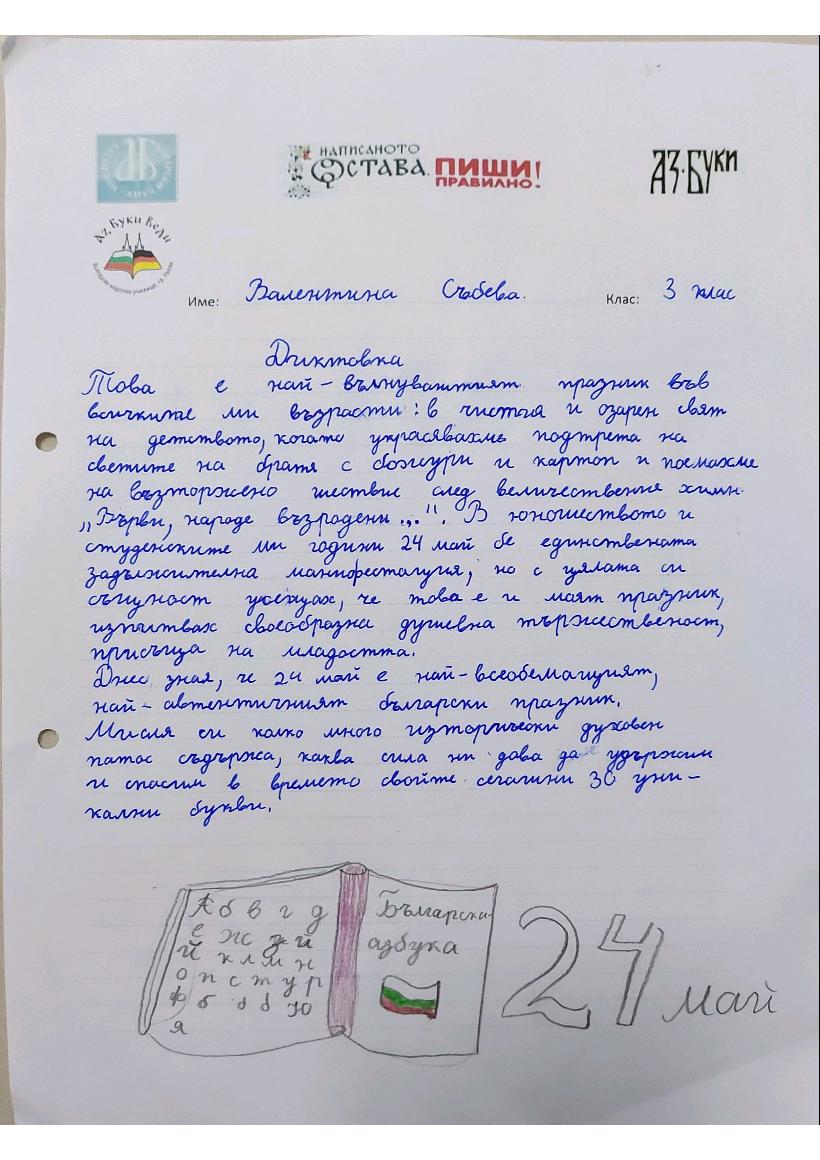 НАПИСАНОТО
ОСТАВА. ПИШИ
ПРАВИЛНО!
АЗ·БУКИ
Аз Буки Веди
Име: Валентина Събева. Клас: 3 клас
Диктовка
Това е най-вълнуващият празник във
всичките ми възрасти: в чистия и озарен свят
на детството, когато украсявахме подтрета на
светите на братя с божури и картоп и поемахме
на възторжено шествие след величествения химн.
„Върви, народе възродени...". В юношеството и
студенските ми години 24 май бе единствената
задължителна манифестация, но с цялата си
същност усещах, че това е и моят празник,
изпитвах своеобразна душевна тържественост,
присъща на младостта.
Днес зная, че 24 май е най-всеобемащият,
най-автентичният български празник.
Мисля си колко много изторически духовен
патос съдържа, каква сила ни дава да удържим
и спасим в времето свойте сегашни 30 уни-
кални букви.
А б в г д
е ж з и
й к л м н
о п с т у р
ф б ъ ь ю
я
Българска
азбука
24 май